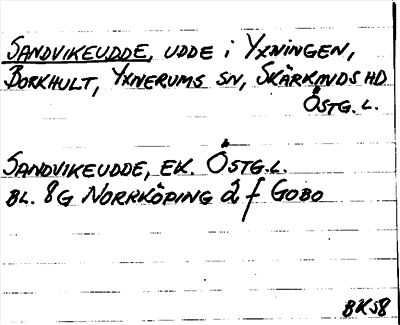 SANDVIKEUDDE, UDDE i YXNINGEN,
BORKHULT, YXNERUMS SN, SKÄRKINDS HD
ÖSTG. L.
SANDVIKEUDDE, EK. ÖSTG. L.
BL. 8G NORRKÖPING d f GOBO
BK58